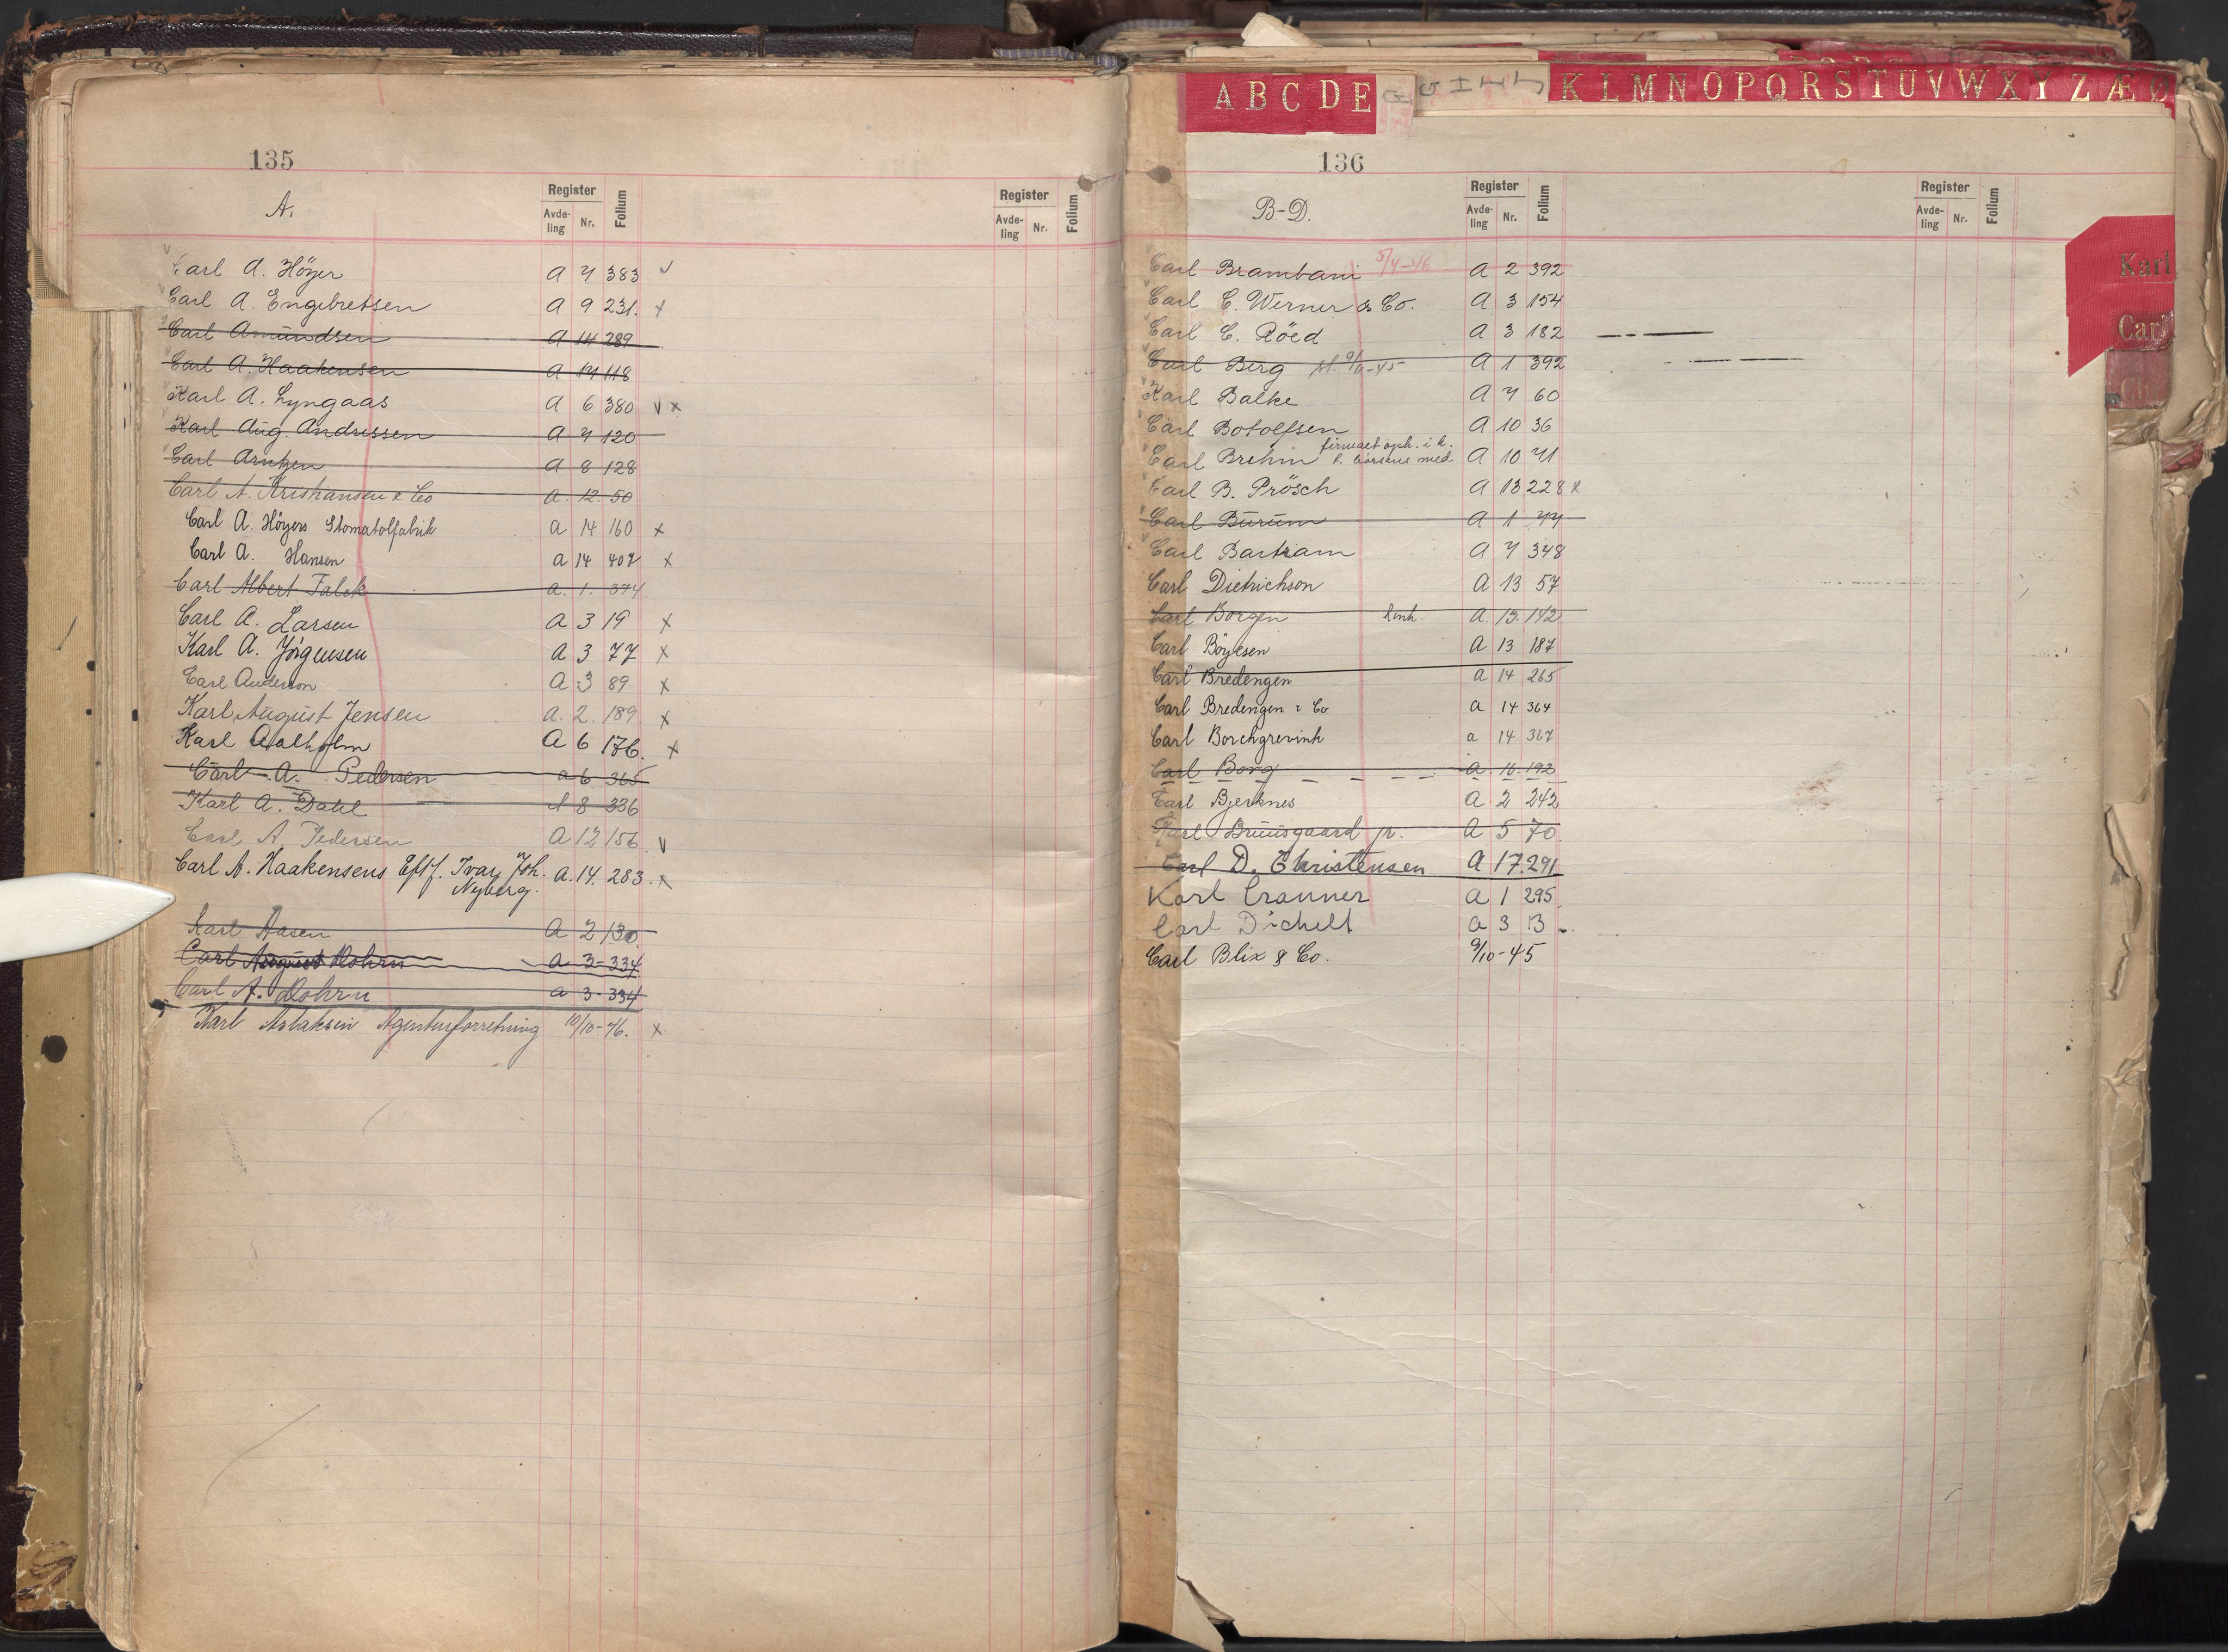 135
A.
Register
Avde-
ling
Nr.
Folium
Register
Avde-
ling
Nr.
Folium
Carl A. Höyer A 7 383 v
Carl A. Engebretsen A 9 231. x
Carl Amundsen A 14 289
Carl A. Haakensen A 14 118
Karl A. Lyngaas A 6 380 v x
Karl Aug. Andressen A 7 120
Carl Arntzen A 8 128
Carl A. Kristiansen & Co A. 12. 50
Carl A. Höyers Stomatolfabrik A 14 160 x
Carl A. Hansen A 14 407 x
Carl Albert Falck A. 1. 374
Carl A. Larsen A 3 19 x
Karl A. Jörgensen A 3 77 x
Carl Anderson A 3 89 x
Karl August Jensen A. 2. 189 x
Karl Aalholm A 6 176. x
Carl A. Pedersen A 6 365
Karl A. Dahl A 8 336
Carl A. Pedersen A 12 156. v
Carl A. Haakensens Eftf. Ivar Joh. A. 14. 283. x
Nyberg.
Karl Aasen A 2 130
Carl August Dohrn A 3-334
Carl A. Dohrn A 3-334
Karl Aslaksen Agenturforretning 10/10-46. x
A B C D E
G H I J
K L M N O P Q R S T U V W X Y Z Æ Ø
136
B-D.
Register
Avde-
ling
Nr.
Folium
Register
Avde-
ling
Nr.
Folium
Karl
Carl
Carl Brambani 5/4-46 A 2 392
Carl C. Werner & Co. A 3 154
Carl C. Röed A 3 182
Carl Berg A 1 392
Karl Balke A 7 60
Carl Botolfsen A 10 36
Carl Brehm A 10 71
Carl B. Prösch A 13 228 x
Carl Burum A 1 77
Carl Bartram A 7 348
Carl Dietrichson A 13 57
Carl Borgen konk. A. 13. 142
Carl Böyesen A 13 187
Carl Bredengen A 14 265
Carl Bredengen & Co A 14 364
Carl Borchgrevink A 14 367
Carl Borg A. 16. 192
Carl Bjerknes A 2 242
Karl Bruusgaard jr. A 5 70
Carl D. Christensen A 17.291
Karl Cranner A 1 295
Carl Dichelt A 3 13
Carl Blix & Co. 9/10-45